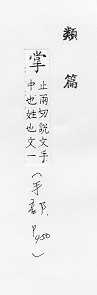 類篇
掌
止兩切說文手
中也姓也文一
(手部, P450)